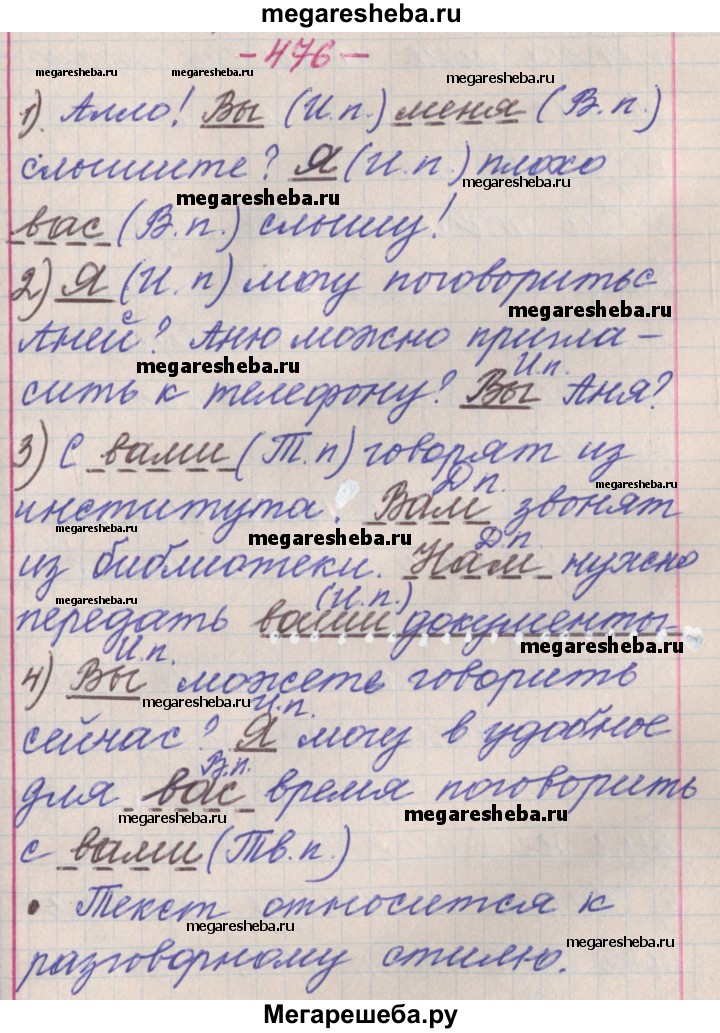 megaresheba.ru
- 476 -
megaresheba.ru megaresheba.ru megaresheba.ru
1). Алло! Вы (И.п.) меня (В.п.)
слышите? Я (И.п.) плохо
megaresheba.ru
megaresheba.ru
вас (В.п.) слышу!
2) Я (И.п) могу поговорить с
megaresheba.ru
Аней? Аню можно пригла-
megaresheba.ru
сить к телефону? Вы И.п. Аня?
3) С вами (Т.п) говорят из
megaresheba.ru
института. Вам Д.п. звонят
megaresheba.ru
megaresheba.ru
из библиотеки. Нам Д.п нужно
megaresheba.ru
передать ваши (И.п.) документы
megaresheba.ru
4) Вы И.п. можете говорить
megaresheba.ru
сейчас? Я И.п. могу в удобное
для вас В.п. время поговорить
megaresheba.ru
megaresheba.ru
с вами (Тв.п.)
• Текст относится к
megaresheba.ru
megaresheba.ru
разговорному стилю.
Мегарешеба.ру